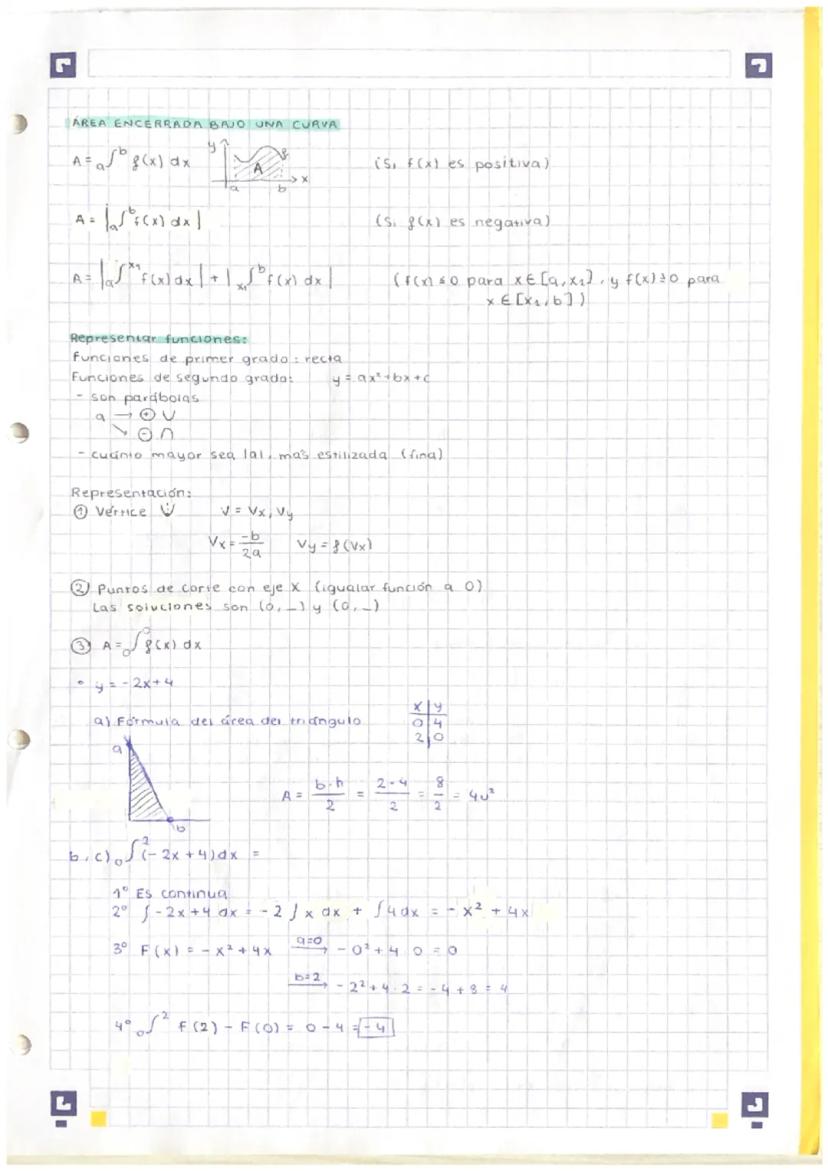 ÁREA ENCERRADA BAJO UNA CURVA
A = a∫b f(x) dx y f A a b x (Si f(x) es positiva)
A = |a∫b f(x) dx| (Si f(x) es negativa)
A = |a∫x1 f(x) dx| + |x1∫b f(x) dx| (f(x) ≤ 0 para x ∈ [a, x1], y f(x) ≥ 0 para
x ∈ [x1, b])
Representar funciones:
Funciones de primer grado: recta
Funciones de segundo grado: y = ax² + bx + c
- son parábolas
a → ⊕ ∪
↘ ⊖ ∩
- cuánto mayor sea |a|, más estilizada (fina)
Representación:
① Vértice V = Vx, Vy
Vx = -b/2a Vy = f(Vx)
② Puntos de corte con eje X (igualar función a 0)
Las soluciones son (0, _) y (0, _)
③ A = 0∫0 f(x) dx
• y = -2x + 4
a) Fórmula del área del triángulo x | y
0 | 4
2 | 0
a
A = b·h/2 = 2·4/2 = 8/2 = 4u²
b
b, c) 0∫2 (-2x + 4) dx =
1º Es continua
2º ∫-2x + 4 dx = -2∫x dx + ∫4 dx = -x² + 4x
3º F(x) = -x² + 4x a=0 → -0² + 4·0 = 0
b=2 → -2² + 4·2 = -4 + 8 = 4
4º 0∫2 F(2) - F(0) = 0 - 4 = -4